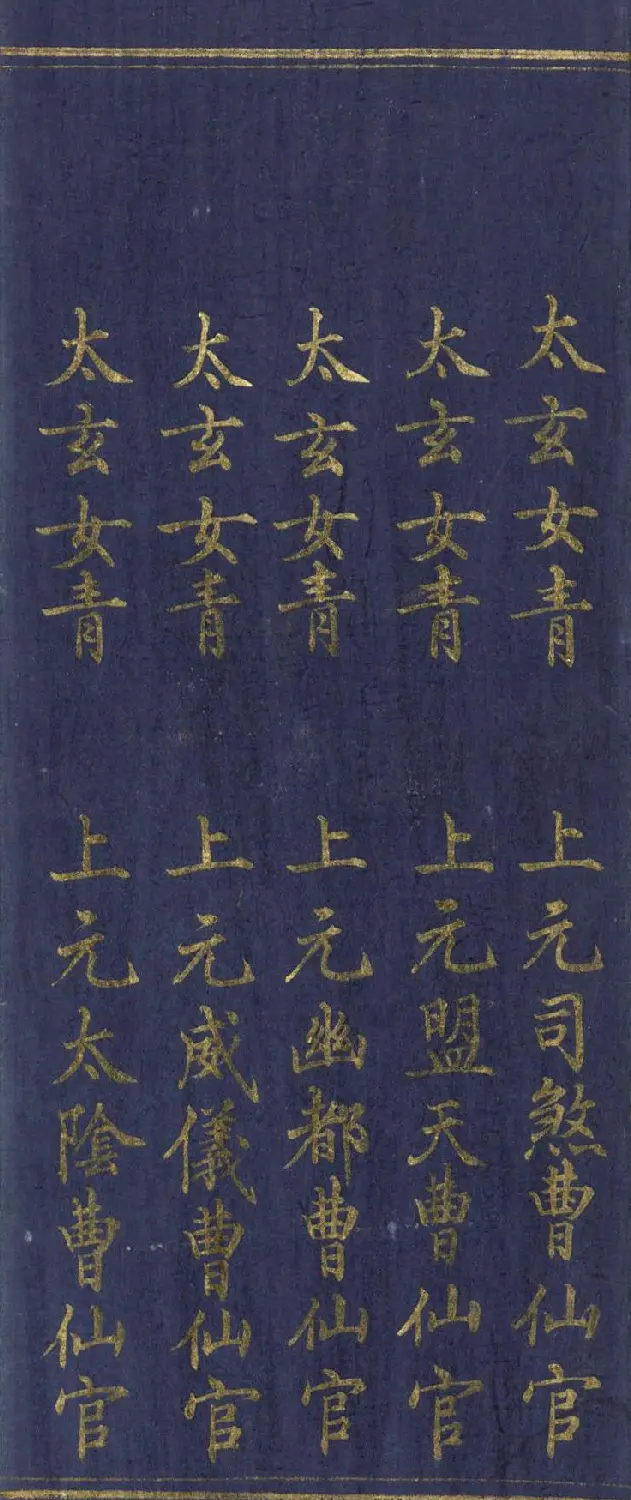 太玄女青 上元司煞曹仙官
太玄女青 上元盟天曹仙官
太玄女青 上元幽都曹仙官
太玄女青 上元威儀曹仙官
太玄女青 上元太陰曹仙官